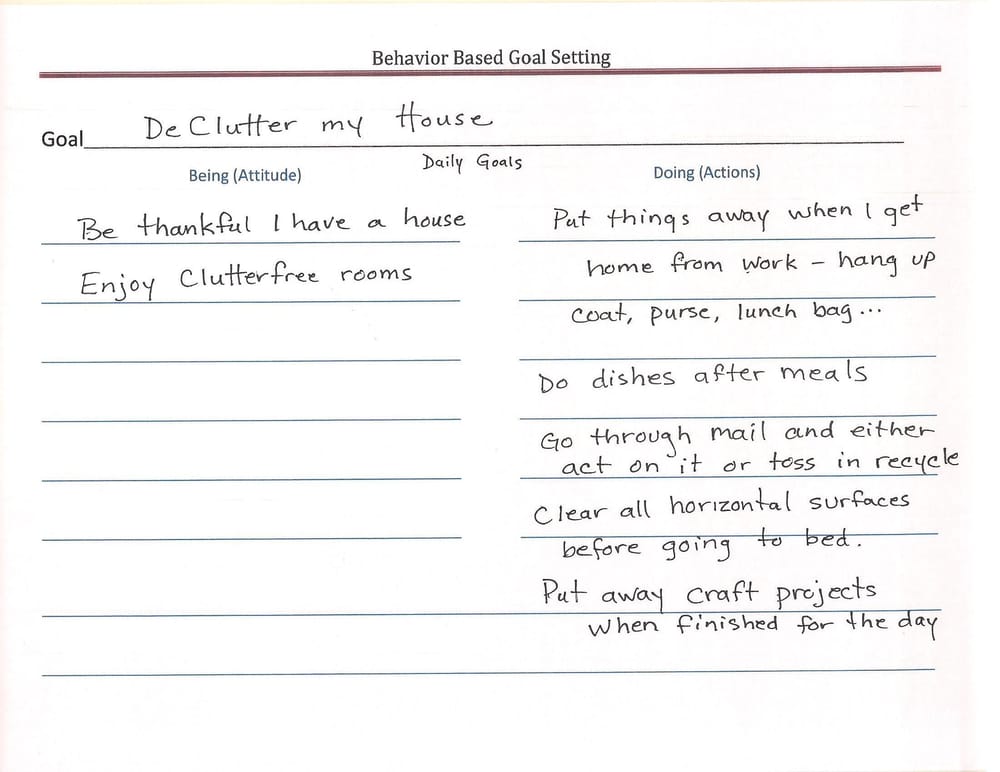 Behavior Based Goal Setting
Goal DeClutter my House
Daily Goals
Being (Attitude)
Be thankful I have a house
Enjoy Clutterfree rooms
Doing (Actions)
Put things away when I get
home from work – hang up
coat, purse, lunch bag...
Do dishes after meals
Go through mail and either
act on it or toss in recycle
Clear all horizontal surfaces
before going to bed.
Put away craft projects
when finished for the day